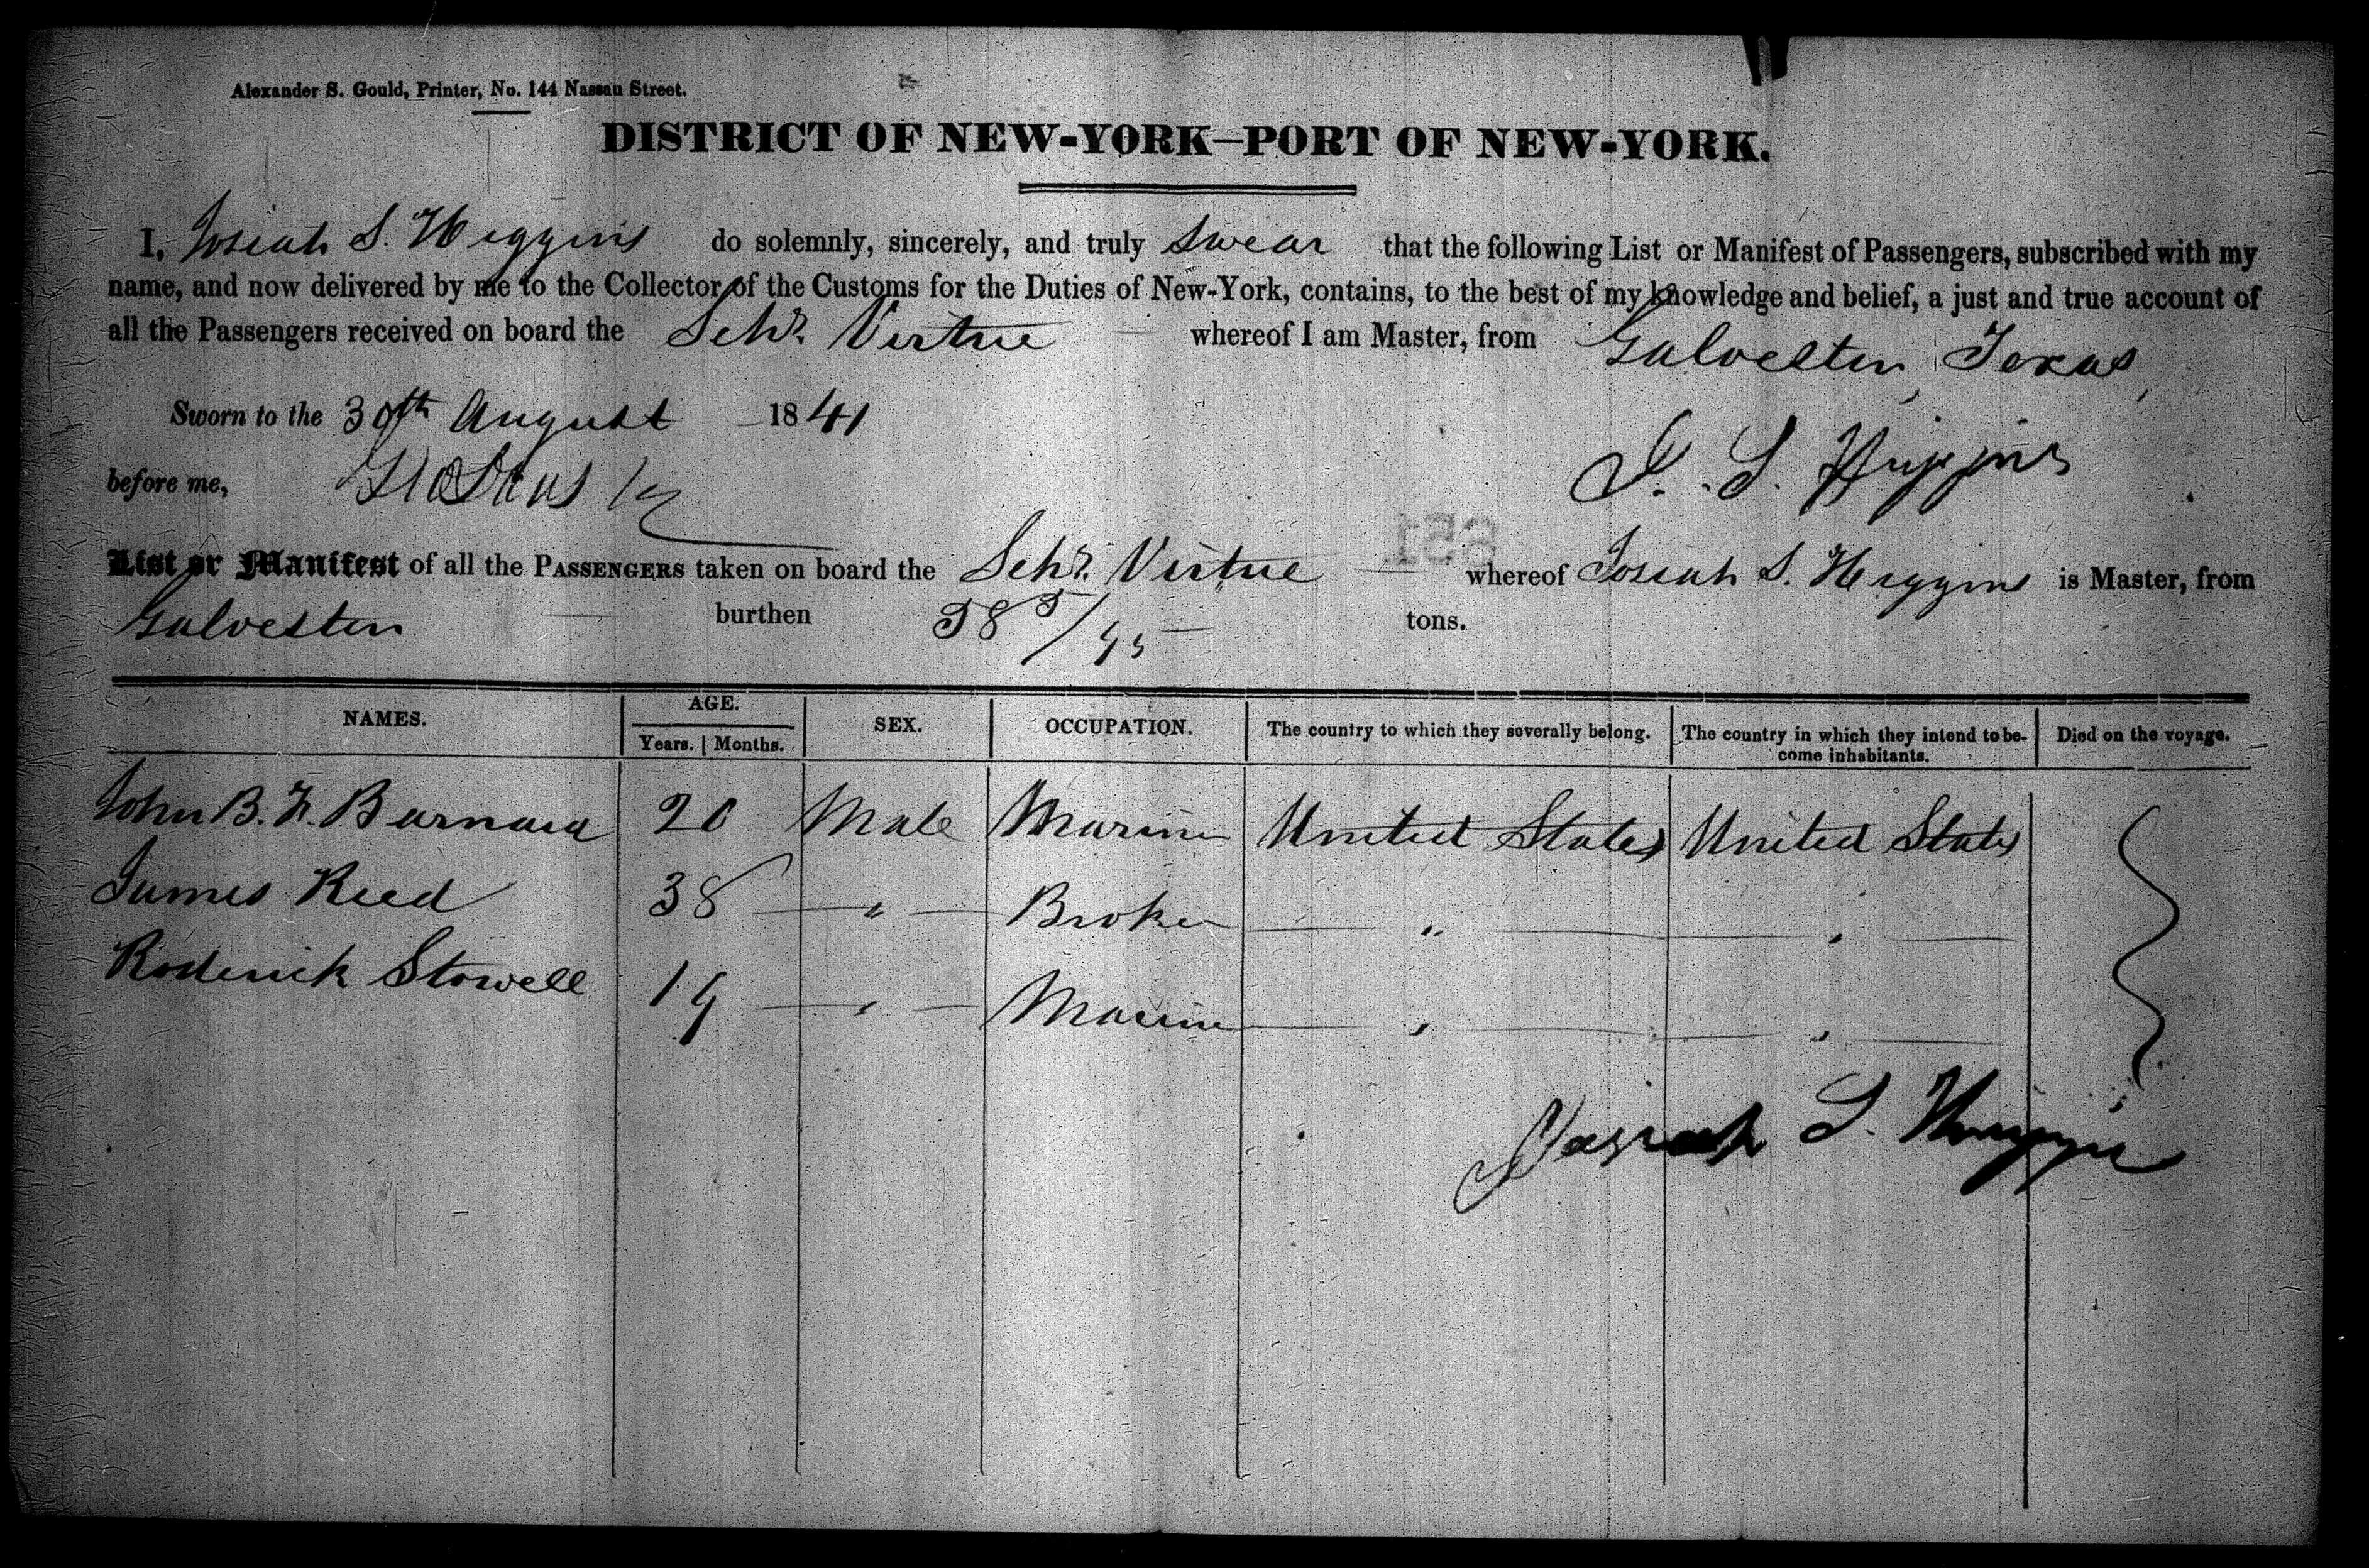 Alexander S. Gould, Printer, No. 144 Nassau Street.
DISTRICT OF NEW-YORK—PORT OF NEW-YORK.
I, Josiah S. Higgins do solemnly, sincerely, and truly swear that the following List or Manifest of Passengers, subscribed with my
name, and now delivered by me to the Collector of the Customs for the Duties of New-York, contains, to the best of my knowledge and belief, a just and true account of
all the Passengers received on board the Schr. Virtue whereof I am Master, from Galveston, Texas
Sworn to the 30th August 1841
before me,
J. S. Higgins
651
List or Manifest of all the PASSENGERS taken on board the Schr. Virtue whereof Josiah S. Higgins is Master, from
Galveston burthen 58 5/95 tons.
NAMES. AGE. SEX. OCCUPATION. The country to which they severally belong. The country in which they intend to become inhabitants. Died on the voyage.
Years. Months.
John B. H. Barnard 20 Male Marine United States United States
James Reed 38 " Broker " "
Roderick Stowell 19 " Marine " "
Josiah S. Higgins